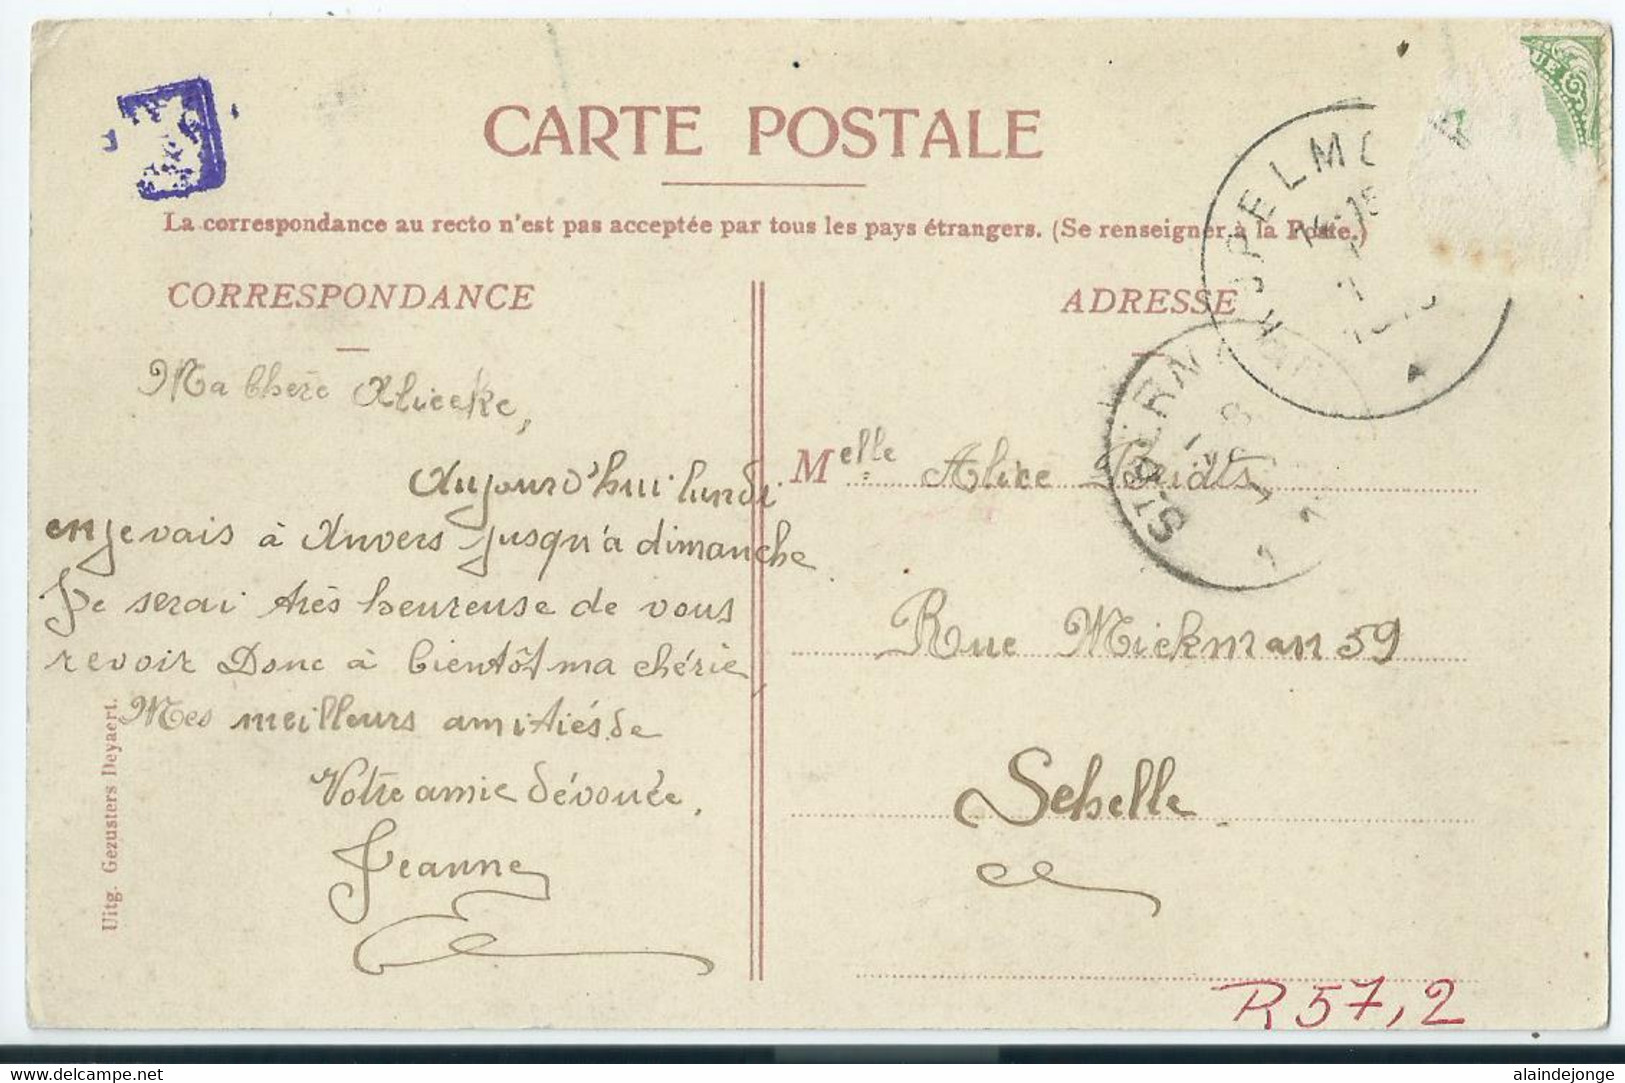 CARTE POSTALE
La correspondance au recto n'est pas acceptée par tous les pays étrangers. (Se renseigner à la Poste.)
CORRESPONDANCE
Ma Chère Alieeke,
Aujourd'hui lundi
en je vais à Anvers jusqu'à dimanche
Je serai très heureuse de vous
revoir Donc à bientôt ma chérie
Mes meilleurs amitiés de
Votre amie dévouée,
Jeanne
Uitg. Gezusters Deyaert.
ADRESSE
Melle Alice
Rue Mickman 59
Schelle
R 57,2
www.delcampe.net
alaindejonge